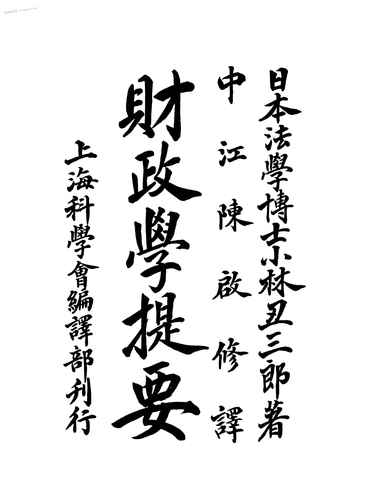 日本法學博士小林丑三郎著
中江陳啟修譯
財政學提要
上海科學會編譯部刊行